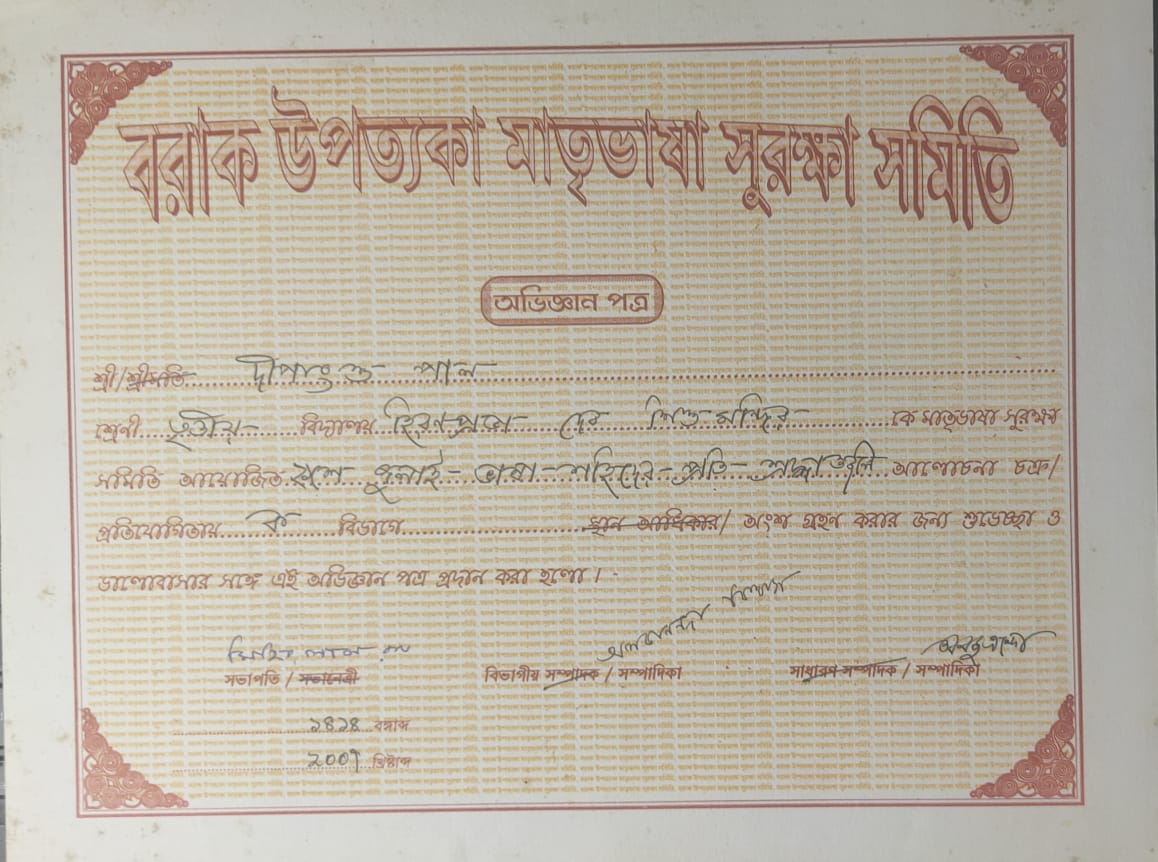 বরাক উপত্যকা মাতৃভাষা সুরক্ষা সমিতি
অভিজ্ঞান পত্র
শ্রী/শ্রীমতি দীপাংশু পাল
শ্রেণী তৃতীয় বিদ্যালয় হিরণপ্রভা দেব শিশু মন্দির কে মাতৃভাষা সুরক্ষা
সমিতি আয়োজিত ভাষা-শহিদের-প্রতি-শ্রদ্ধাঞ্জলি আলোচনা চক্র/
প্রতিযোগিতায় ক বিভাগে স্থান অধিকার/ অংশ গ্রহন করার জন্য শুভেচ্ছা ও
ভালোবাসার সঙ্গে এই অভিজ্ঞান পত্র প্রদান করা হলো।
সভাপতি / সভানেত্রী
বিভাগীয় সম্পাদক / সম্পাদিকা
সাধারণ সম্পাদক / সম্পাদিকা
১৪১৪ বঙ্গাব্দ
২০০৭ খ্রিষ্টাব্দ